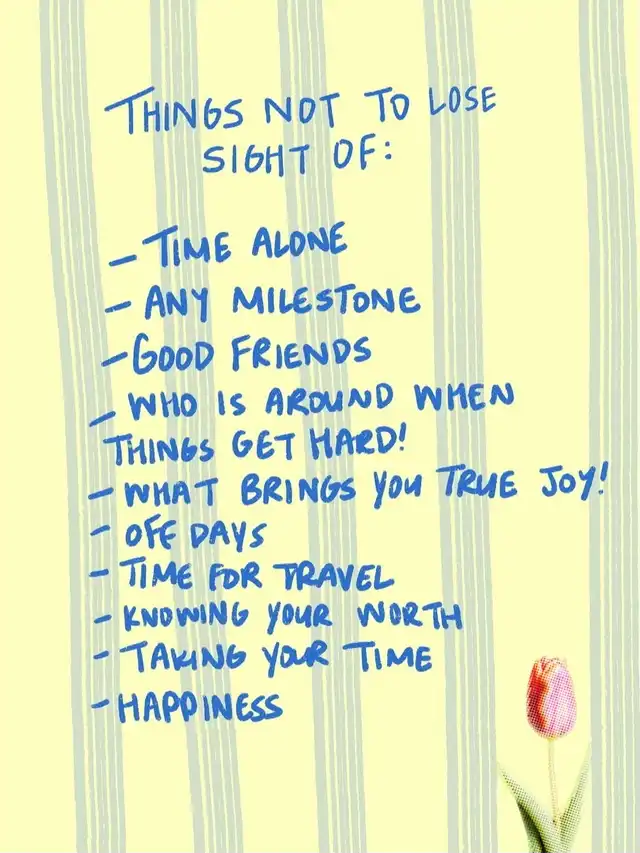 THINGS NOT TO LOSE
SIGHT OF:
- TIME ALONE
- ANY MILESTONE
- GOOD FRIENDS
- WHO IS AROUND WHEN
THINGS GET HARD!
- WHAT BRINGS YOU TRUE JOY!
- OFF DAYS
- TIME FOR TRAVEL
- KNOWING YOUR WORTH
- TAKING YOUR TIME
- HAPPINESS